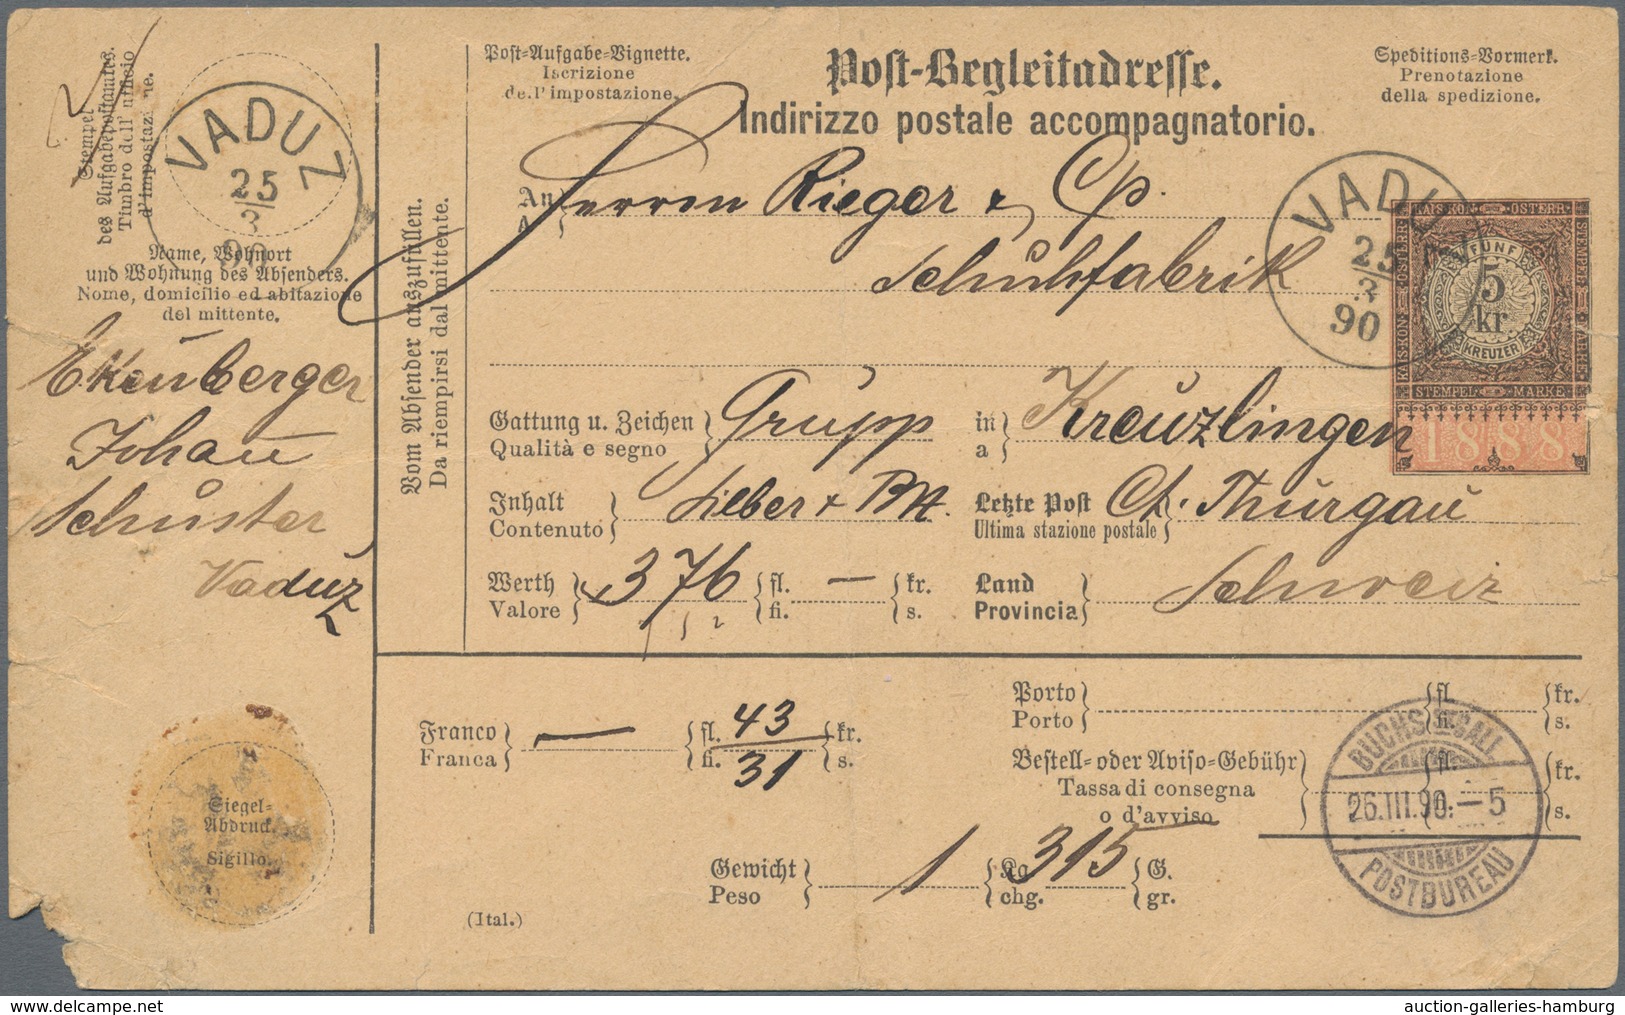 Stempel
des Aufgabepostamtes.
Timbro dell' ufficio
d'impostazione.
VADUZ
25
3
90
Name, Wohnort
und Wohnung des Absenders.
Nome, domicilio ed abitazione
del mittente.
Johann
Schuster
Vaduz
Siegel-
Abdruck.
Sigillo.
Vom Absender auszufüllen.
Da riempirsi dal mittente.
Post-Aufgabe-Vignette.
Iscrizione
dell'impostazione.
Post-Begleitadresse.
Indirizzo postale accompagnatorio.
Speditions-Vormerk.
Prenotazione
della spedizione.
An
A
Herrn Rieger & Cp.
Schuhfabrik
VADUZ
25
3
90
KAIS. KÖN. ÖSTERR.
STEMPEL MARKE
FÜNF
5
kr
KREUZER
1888
Gattung u. Zeichen
Qualità e segno
Grupp
in
a
Kreuzlingen
Inhalt
Contenuto
Silber +
Letzte Post
Ultima stazione postale
Ct. Thurgau
Werth
Valore
376 fl. — kr.
fi. s.
Land
Provincia
Schweiz
Franco
Franca
— fl. 43 kr.
fi. 31 s.
Porto
Porto
fl. kr.
fi. s.
Bestell- oder Aviso-Gebühr
Tassa di consegna
o d'avviso
fl. kr.
fi. s.
Gewicht
Peso
1 Kg 315 G.
chg. gr.
(Ital.)
26.III.90.–5
POSTBUREAU
auction-galleries-hamburg